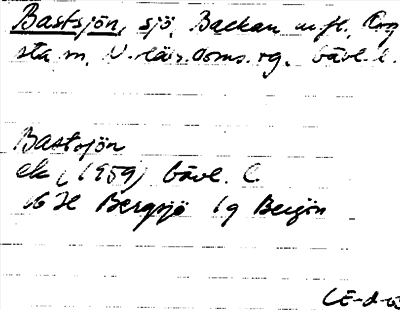 Bastsjön, sjö, Backan m.fl., Rog
sta m, N. Häls. Doms. rg, Gävl. l.
Bastsjön
ek (1959) Gävl. C
16 H Bergsjö 1g Bergön